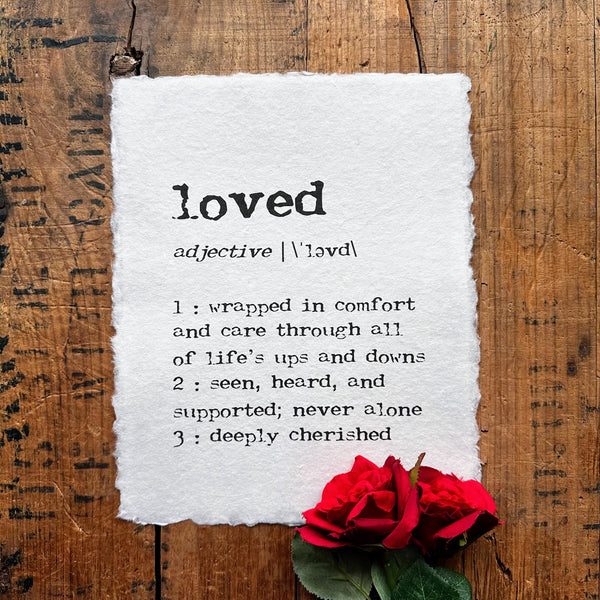 loved
adjective | \ˈləvd\
1 : wrapped in comfort
and care through all
of life's ups and downs
2 : seen, heard, and
supported; never alone
3 : deeply cherished